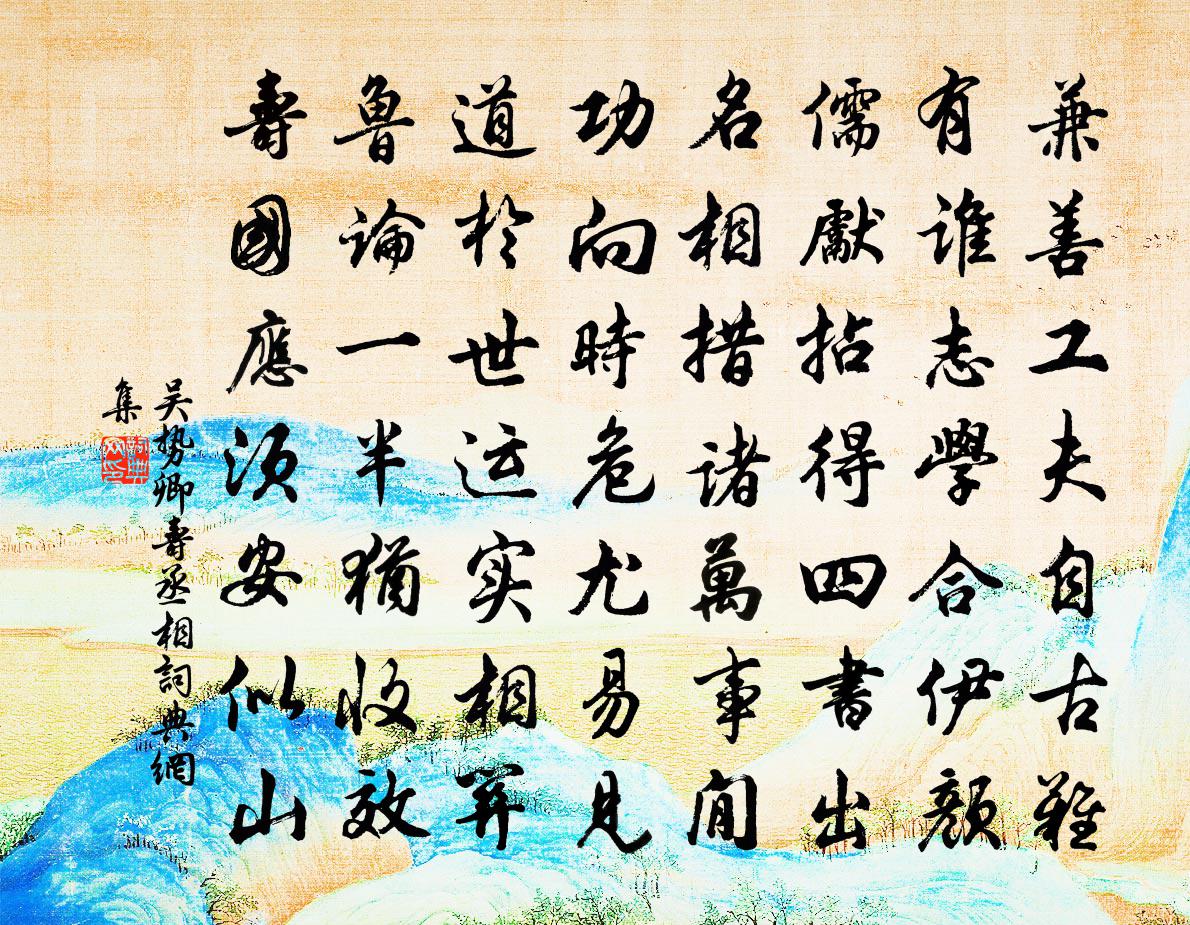 兼善工夫自古難
有誰志學合伊顏
儒獻拈得四書出
名相措諸萬事間
功向時危尤易見
道於世运实相關
魯論一半猶收效
壽國應須安似山
吴势卿壽丞相詞典網
集